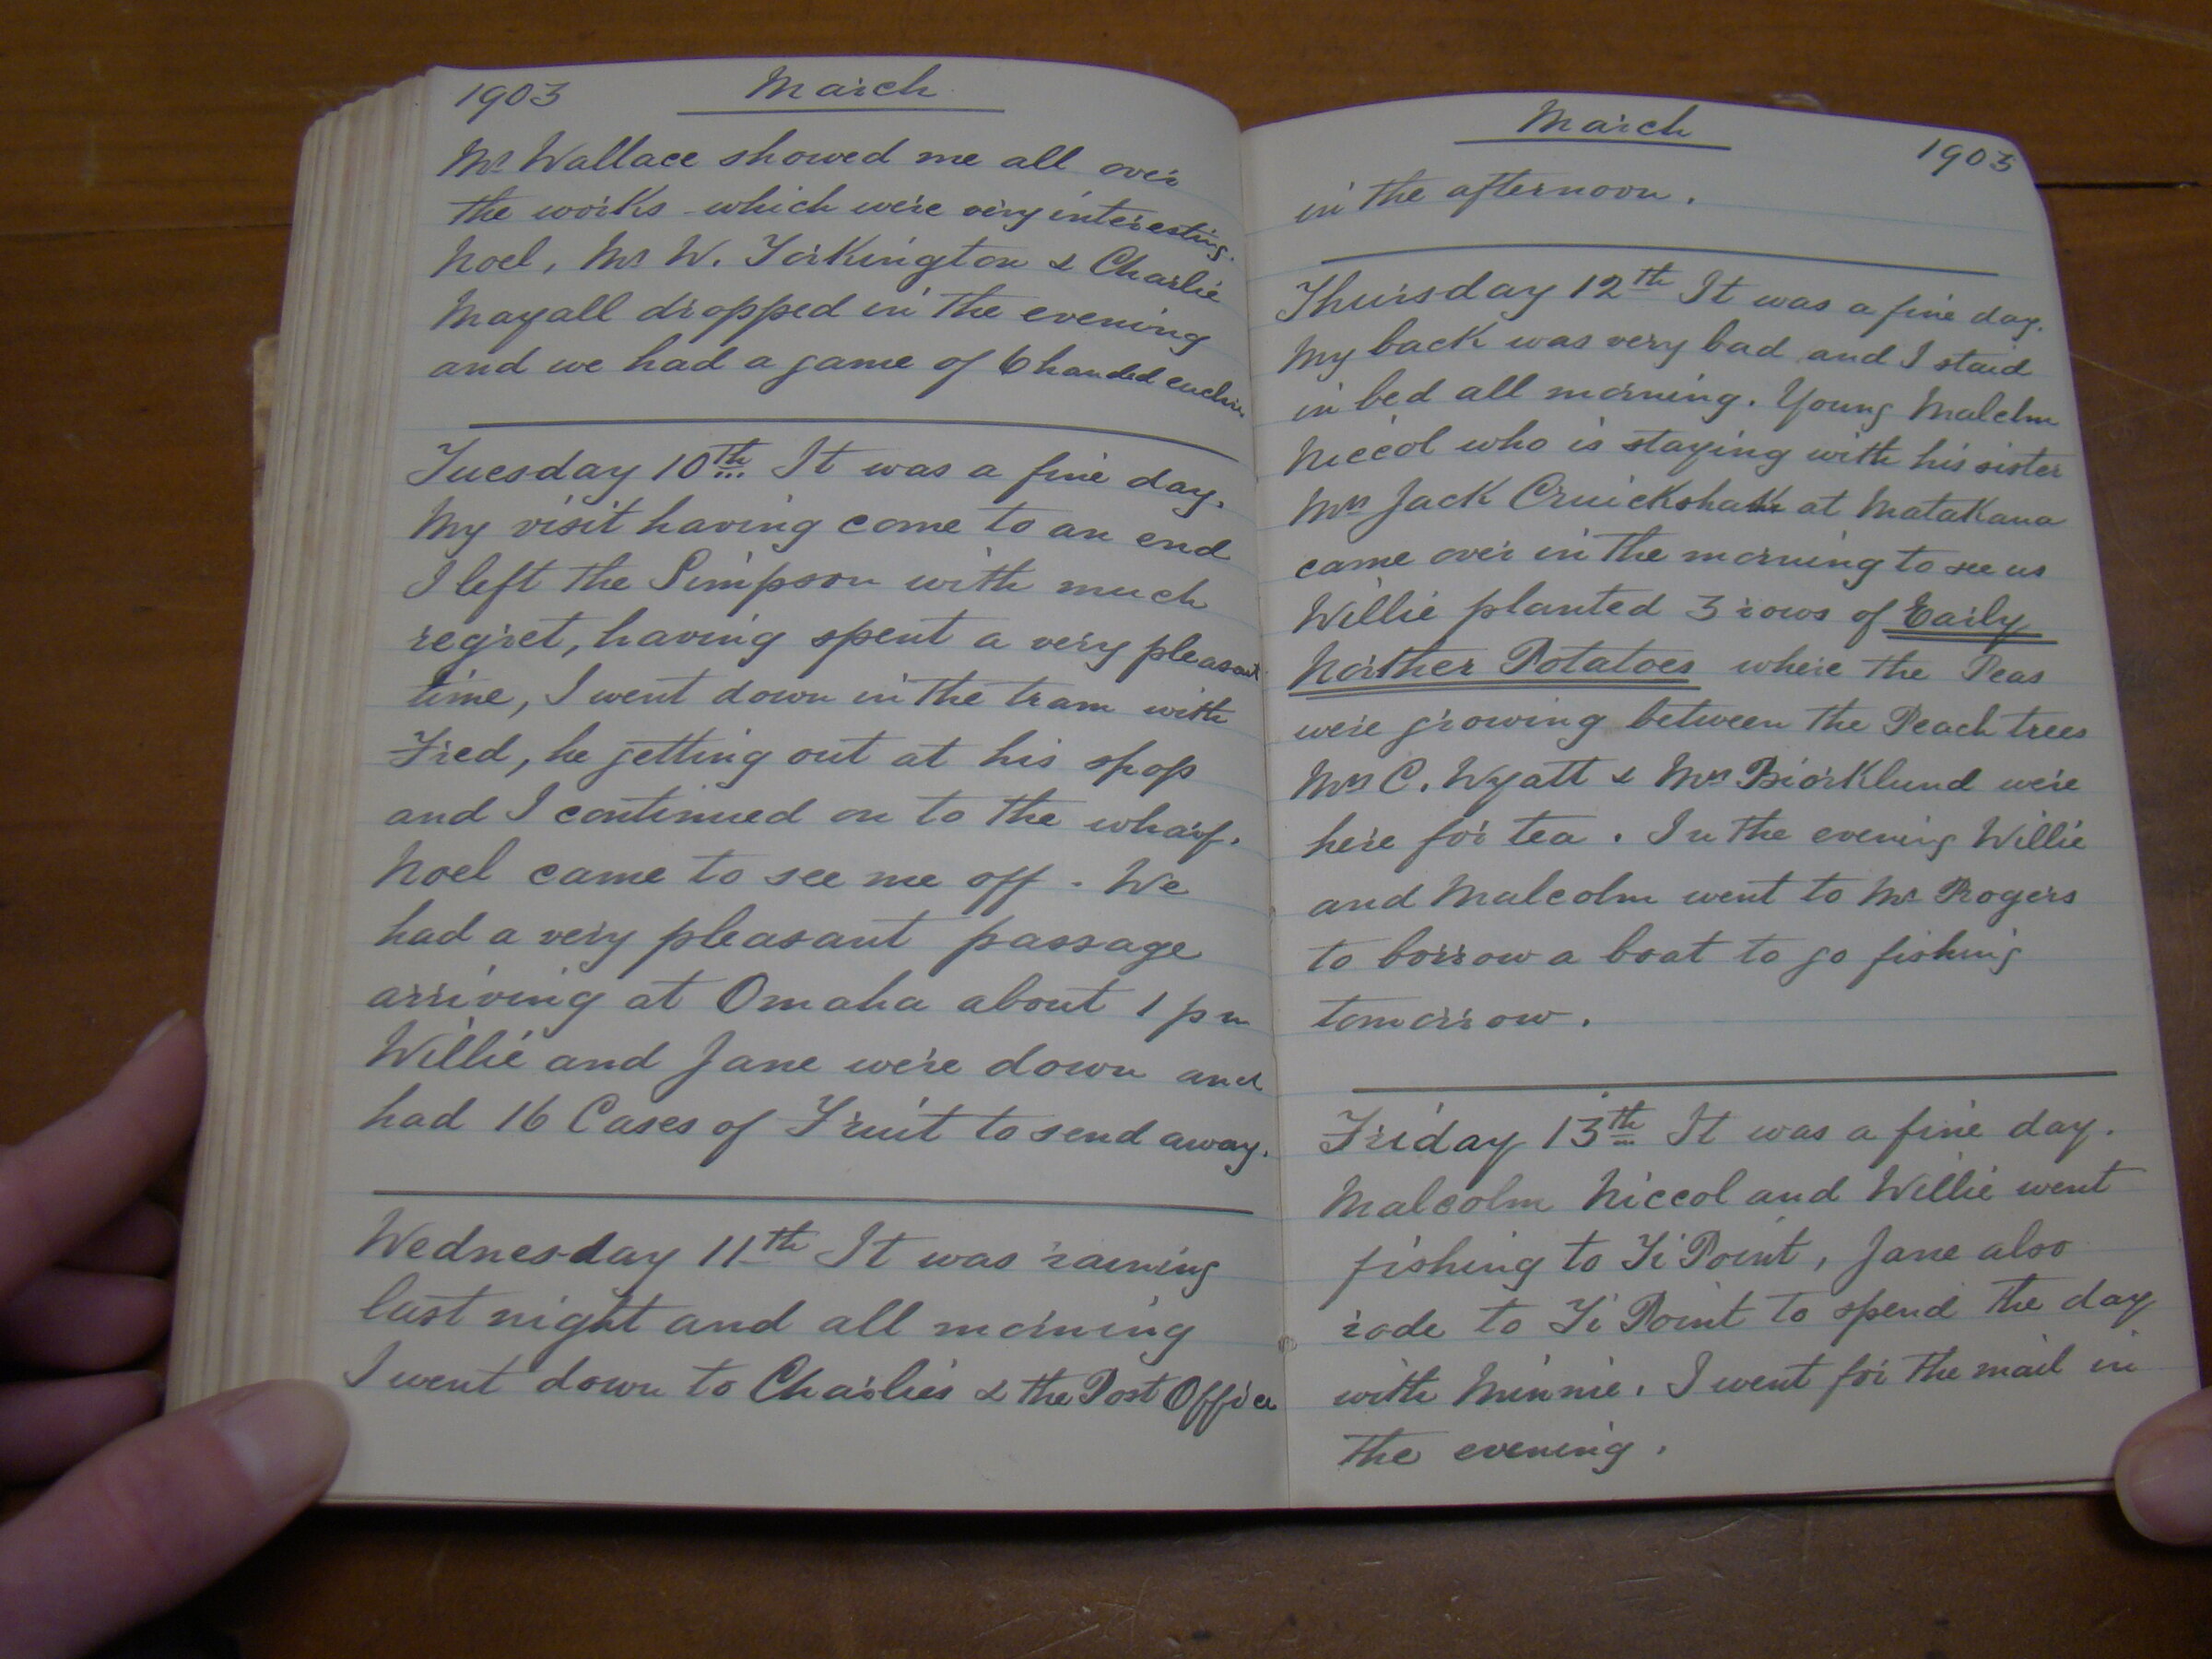 1903 March
Mr Wallace showed me all over
the works which were very interesting.
Noel, Mr W. Torkington & Charlie
Mayall dropped in the evening
and we had a game of 6 handed euchre
Tuesday 10th It was a fine day.
My visit having come to an end
I left the Simpson with much
regret, having spent a very pleasant
time, I went down in the tram with
Fred, he getting out at his shop
and I continued on to the wharf.
Noel came to see me off. We
had a very pleasant passage
arriving at Omaha about 1 pm
Willie and Jane were down and
had 16 Cases of Fruit to send away.
Wednesday 11th It was raining
last night and all morning
I went down to Charlies & the Post Office
March 1903
in the afternoon.
Thursday 12th It was a fine day.
My back was very bad and I staid
in bed all morning. Young Malclm
Niccol who is staying with his sister
Mrs Jack Cruickshak at Matakana
came over in the morning to see us
Willie planted 3 rows of Early
Norther Potatoes where the Peas
were growing between the Peach trees
Mrs C. Wyatt & Mrs Biorklund were
here for tea. In the evening Willie
and Malcolm went to Mr Rogers
to borrow a boat to go fishing
tomorrow.
Friday 13th It was a fine day.
Malcolm Niccol and Willie went
fishing to Ti Point, Jane also
rode to Ti Point to spend the day
with Minnie. I went for the mail in
the evening.